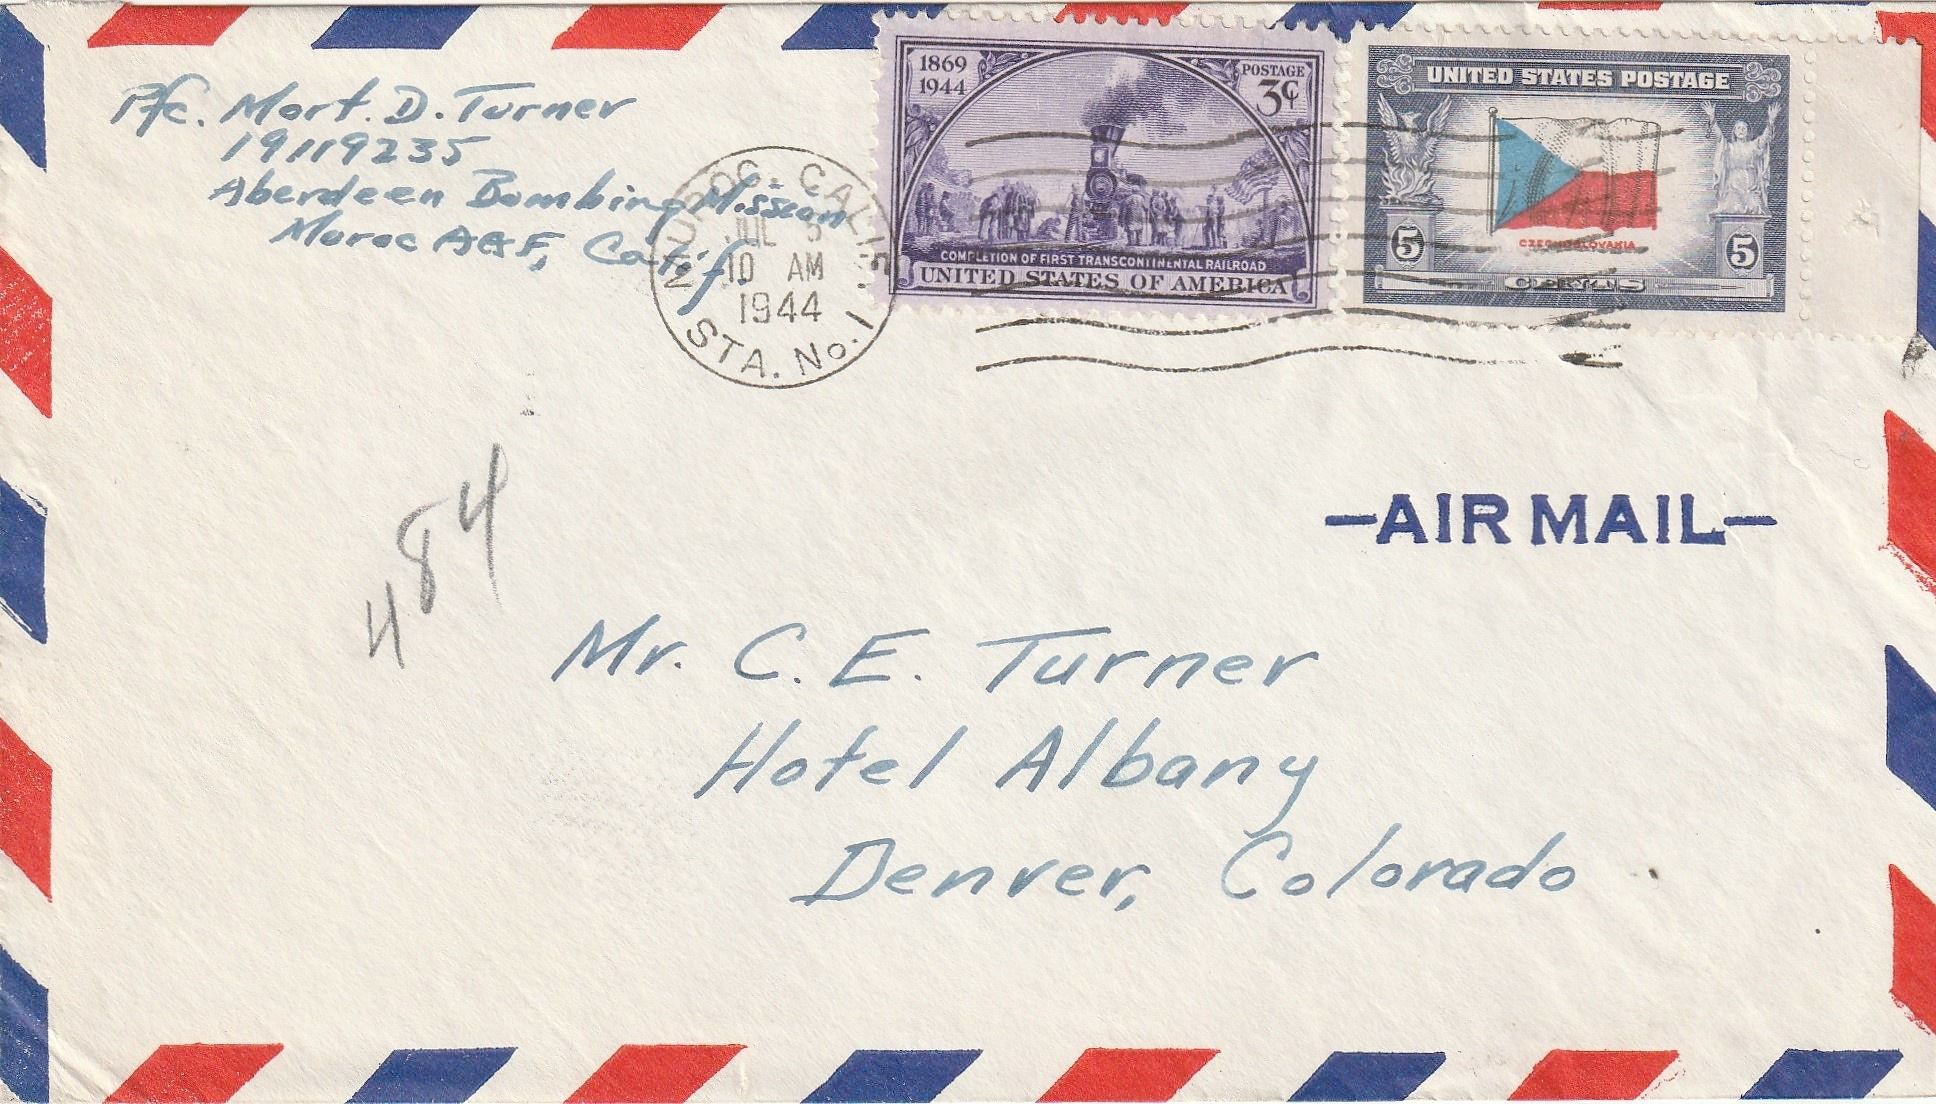 Pfc. Mort. D. Turner
19119235
Aberdeen Bombing Mission
Muroc AAF, Calif.
MUROC. CALIF.
JUL 5
10 AM
1944
STA. No. 1
1869
1944
POSTAGE
3¢
COMPLETION OF FIRST TRANSCONTINENTAL RAILROAD
UNITED STATES OF AMERICA
UNITED STATES POSTAGE
CZECHOSLOVAKIA
5 5
CENTS
484
—AIR MAIL—
Mr. C. E. Turner
Hotel Albany
Denver, Colorado